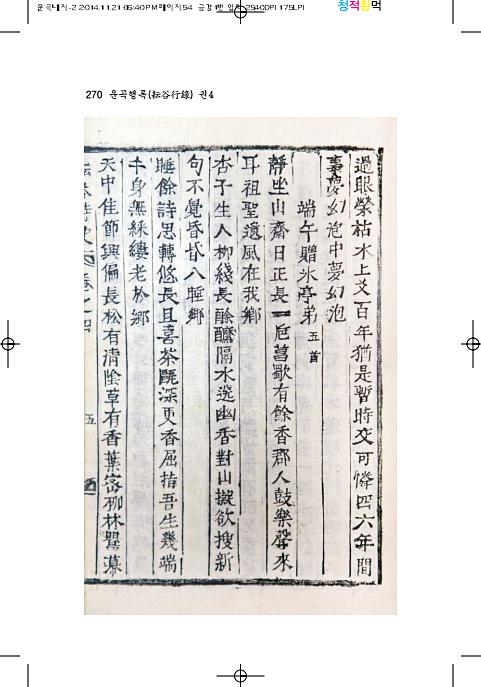 운곡내지-2 2014.11.21 05:40 PM 페이지54
2540DPI 175LPI
청적황먹
270 운곡행록(耘谷行錄) 권4
過眼榮枯水上文百年猶是暫時交可憐四六年間
事夢幻泡中夢幻泡
端午贈氷亭弟五首
靜坐山齋日正長一巵菖歜有餘香郡人鼓樂聲來
耳祖聖遺風在我鄕
杏子生人柳綫長酴醿隔水送幽香對山擬欲搜新
句不覺昏昏入睡鄕
睡餘詩思轉悠長且喜茶甌深更香屈指吾生幾端
午身無綵縷老於鄕
天中佳節興偏長松有淸陰草有香葉密柳林翳幕
卷之四
五